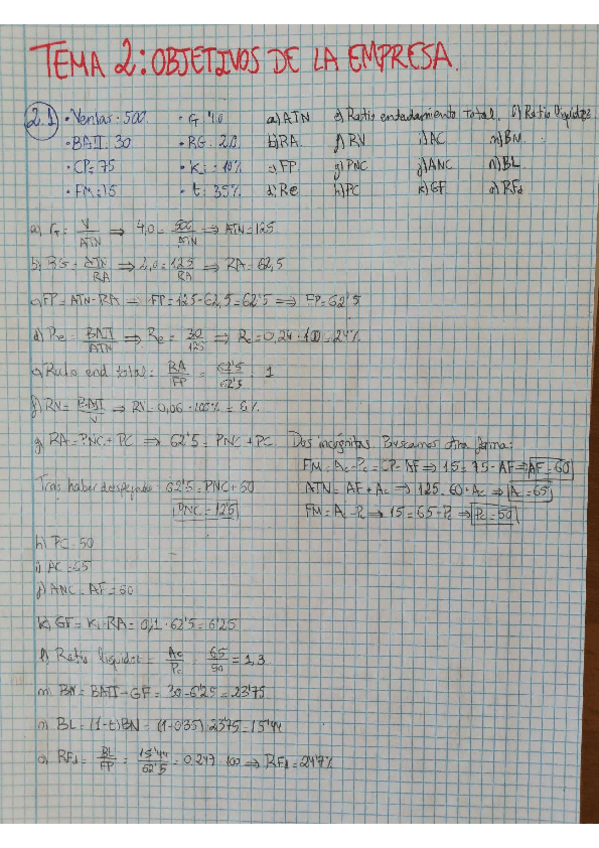 TEMA 2: OBJETIVOS DE LA EMPRESA.
2.1 • Ventas: 500 • G: 4.0 a) ATN e) Ratio endeudamiento total. l) Ratio liquidez
• BAII: 30 • RG: 2.0 b) RA f) RV i) AC m) BN
• CP: 75 • Ki: 10% c) FP g) PNC j) ANC n) BL
• FM: 15 • t: 35% d) Re h) PC k) GF o) RFd
a) G = V/ATN ⇒ 4,0 = 500/ATN ⇒ ATN = 125
b) RG = ATN/RA ⇒ 2,0 = 125/RA ⇒ RA = 62,5
c) FP = ATN - RA → FP = 125 - 62,5 = 62'5 ⇒ FP = 62'5
d) Re = BAII/ATN ⇒ Re = 30/125 ⇒ Re = 0,24 · 100 = 24%
e) Ratio end total = RA/FP = 62'5/62'5 = 1
f) RV = BAII/V ⇒ RV = 0,06 · 100% = 6%
g) RA = PNC + PC ⇒ 62'5 = PNC + PC Dos incógnitas. Buscamos otra forma:
FM = Ac - Pc = CP - AF ⇒ 15 = 75 - AF ⇒ AF = 60
Tras haber despejado: 62'5 = PNC + 50 ATN = AF + Ac ⇒ 125 = 60 + Ac ⇒ Ac = 65
PNC = 12'5 FM = Ac - Pc ⇒ 15 = 65 - Pc ⇒ Pc = 50
h) PC = 50
i) AC = 65
j) ANC = AF = 60
k) GF = Ki · RA = 0,1 · 62'5 = 6'25
l) Ratio liquidez = Ac/Pc = 65/50 = 1,3
m) BN = BAII - GF = 30 - 6'25 = 23'75
n) BL = (1-t) BN = (1-0'35) · 23'75 = 15'44
o) RFd = BL/FP = 15'44/62'5 = 0.247 · 100 ⇒ RFd = 24'7%